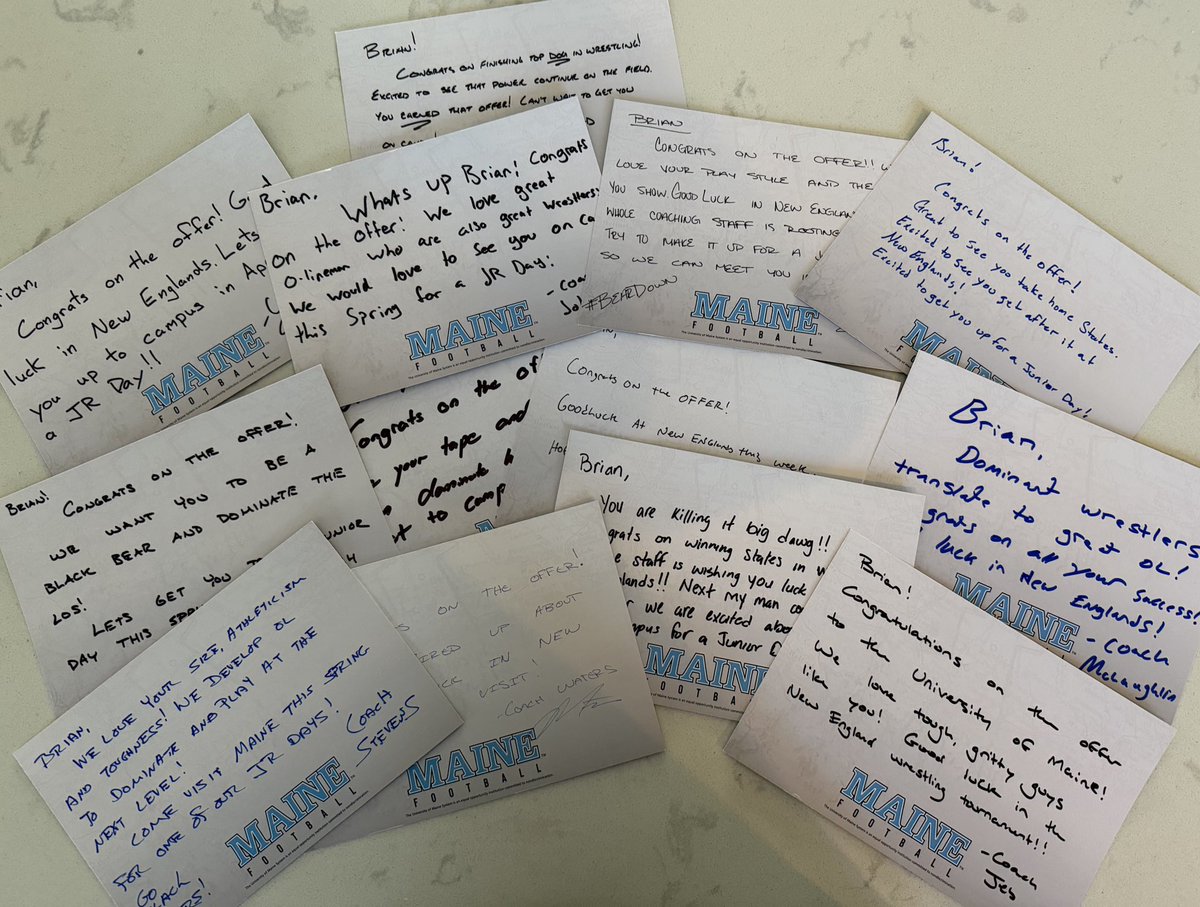 BRIAN!
CONGRATS ON FINISHING TOP DOG IN WRESTLING!
EXCITED TO SEE THAT POWER CONTINUE ON THE FIELD.
YOU EARNED THAT OFFER! CAN'T WAIT TO GET YOU
ON
Congrats on the offer!
luck in New Englands. Lets
you up to campus in
a JR Day!!
MAINE
FOOTBALL
Brian,
Whats up Brian! Congrats
on the offer! We love great
O-lineman who are also great wrestlers!
We would love to see you on
this Spring for a JR Day!
MAINE
FOOTBALL
The University of Maine System is an equal opportunity institution committed to nondiscrimination.
BRIAN
CONGRATS ON THE OFFER!!
LOVE YOUR PLAY STYLE AND THE
YOU SHOW. GOOD LUCK IN NEW ENGLAND
WHOLE COACHING STAFF IS ROOTING
TRY TO MAKE IT UP FOR A
SO WE CAN MEET YOU
#BEARDOWN
MAINE
FOOTBALL
Brian!
Congrats on the offer!
Great to see you take home States.
Excited to see you get after it at
New Englands!
Excited to get you up for a Junior Day!
BRIAN! CONGRATS ON THE OFFER!
WE WANT YOU TO BE A
BLACK BEAR AND DOMINATE THE
LOS!
LETS GET YOU
DAY THIS
Congrats on the
your tape and
to camp
Congrats on the OFFER!
Goodluck At New Englands this week.
Brian,
You are killing it big dawg!!
on winning States in
staff is wishing you luck
Next my man
we are excited
for a Junior
MAINE
FOOTBALL
Brian,
Dominant wrestlers
translate to great OL!
on all your success!
luck in New Englands!
- Coach
McLaughlin
MAINE
BRIAN,
WE LOVE YOUR SIZE, ATHLETICISM
AND TOUGHNESS! WE DEVELOP OL
TO DOMINATE AND PLAY AT THE
NEXT LEVEL!
COME VISIT MAINE THIS SPRING
FOR ONE OF OUR JR DAYS!
GO
COACH
STEVENS
MAINE
FOOTBALL
ON THE OFFER!
UP ABOUT
IN NEW
VISIT!
-COACH WATERS
MAINE
FOOTBALL
The University of Maine System is an equal opportunity institution committed to nondiscrimination.
Brian!
Congratulations on the offer
to the University of Maine!
We love tough, gritty guys
like you! Good luck in the
New England wrestling tournament!!
- Coach
Jeb
MAINE
FOOTBALL